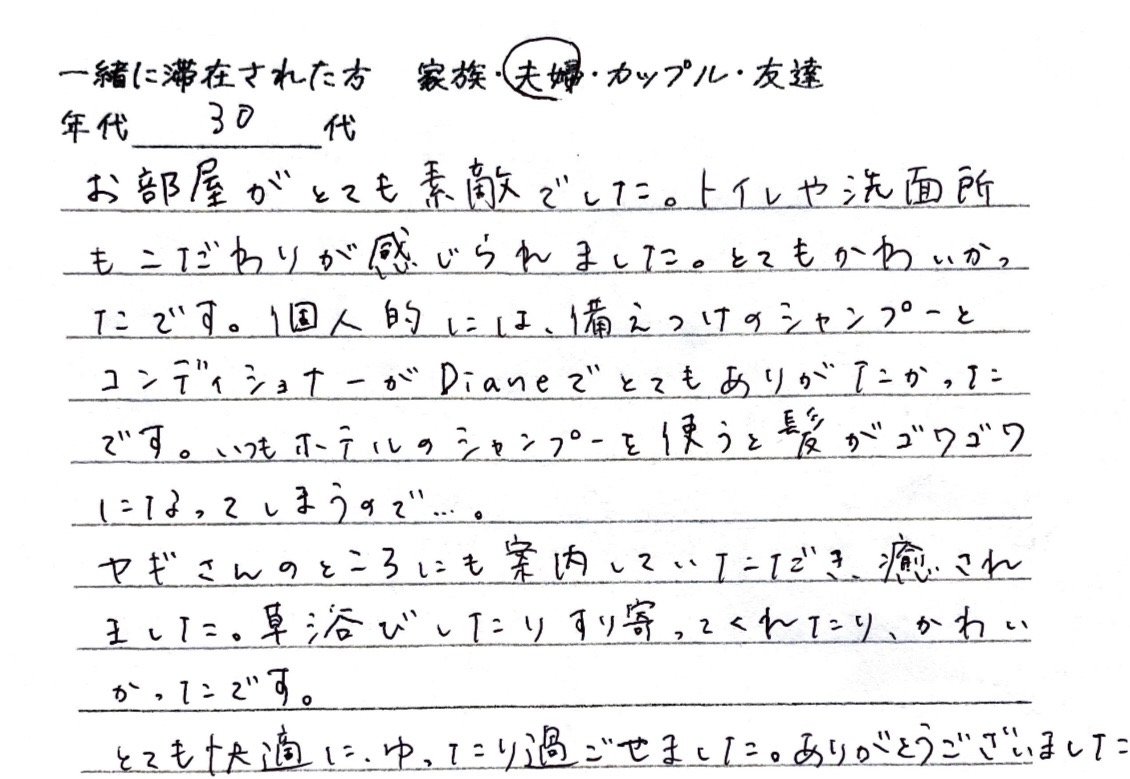 一緒に滞在された方　家族・夫婦・カップル・友達
年代 30 代
お部屋がとても素敵でした。トイレや洗面所
もこだわりが感じられました。とてもかわいかっ
たです。個人的には、備えつけのシャンプーと
コンディショナーがDianeでとてもありがたかった
です。いつもホテルのシャンプーを使うと髪がゴワゴワ
になってしまうので…。
ヤギさんのところにも案内していただき、癒され
ました。草浴びしたりすり寄ってくれたり、かわい
かったです。
とても快適に、ゆったり過ごせました。ありがとうございました